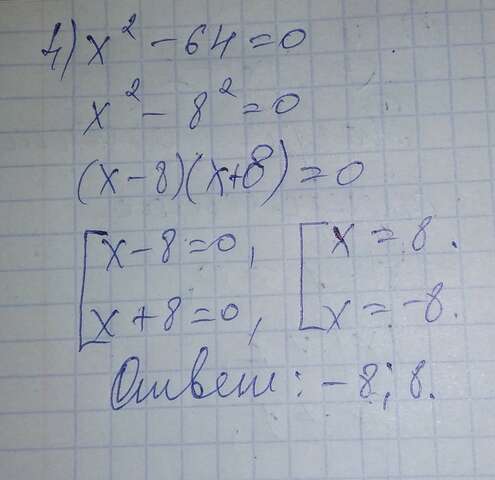 4) x² - 64 = 0
x² - 8² = 0
(x - 8)(x + 8) = 0
[ x - 8 = 0, [ x = 8.
x + 8 = 0, x = -8.
Ответ: -8; 8.